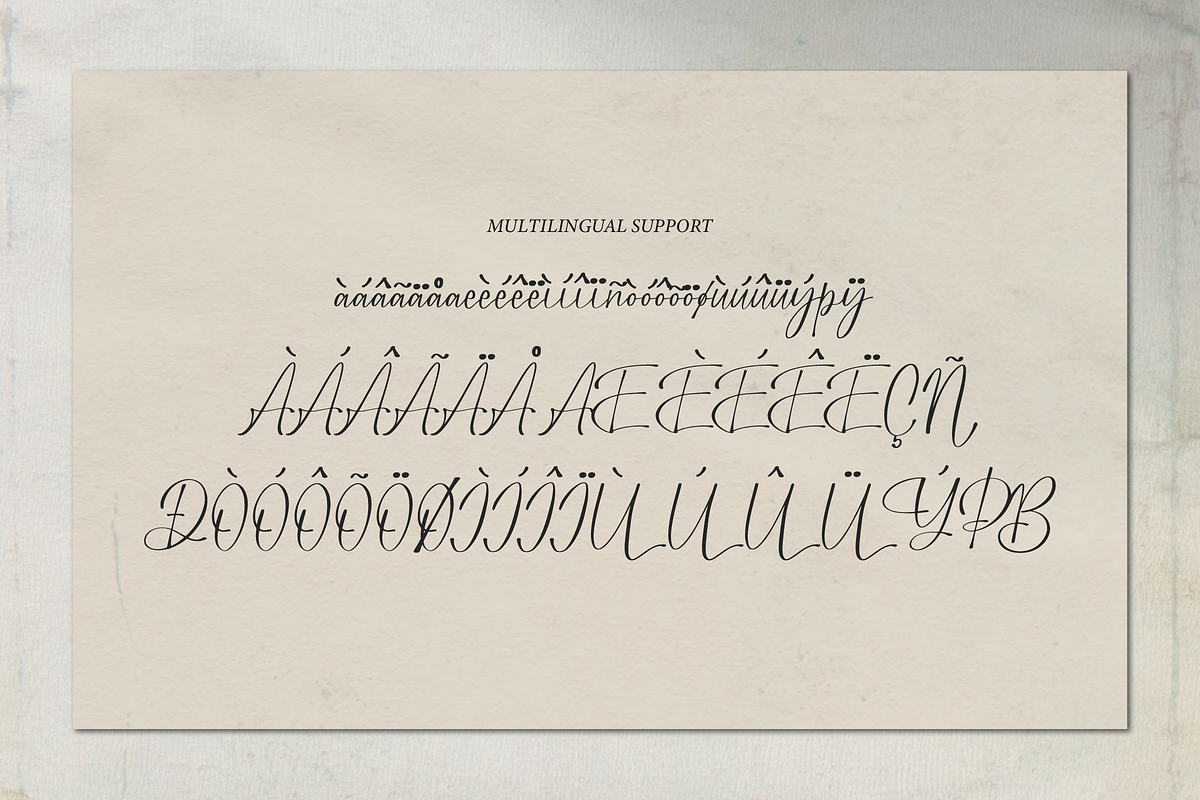 MULTILINGUAL SUPPORT
àáâãäåæèéêëìíîïñòóôõöøùúûüýþÿ
ÀÁÂÃÄÅ ÆÈÉÊËÇÑ
ÐÒÓÔÕÖØÌÍÎÏÙÚÛÜÝÞß